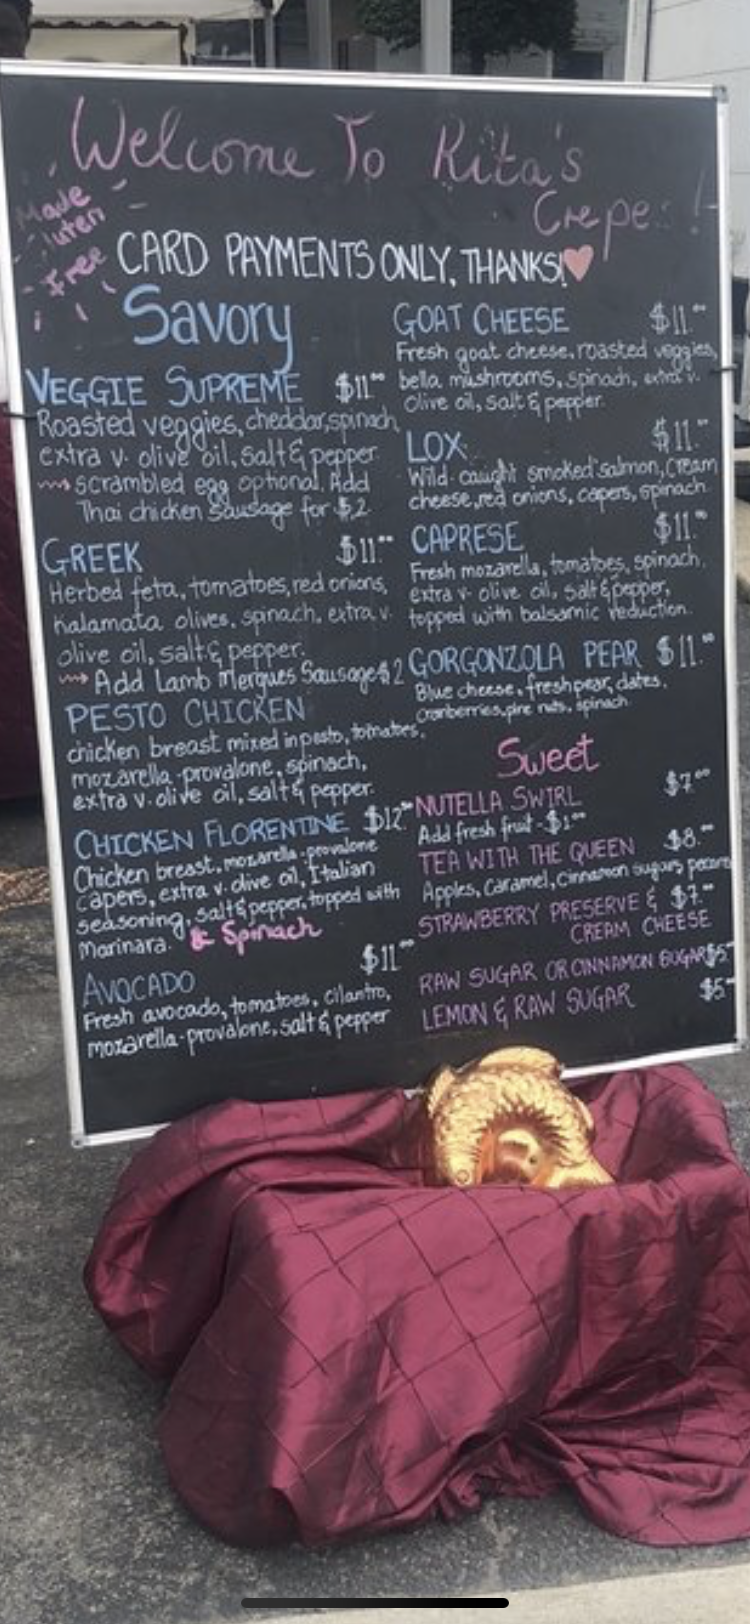 Welcome To Rita's
Crepes!
Made
Gluten
Free
CARD PAYMENTS ONLY, THANKS!
Savory
VEGGIE SUPREME $11.00
Roasted veggies, cheddar, spinach,
extra v. olive oil, salt & pepper
scrambled egg optional. Add
Thai chicken Sausage for $2
GREEK $11.00
Herbed feta, tomatoes, red onions,
Kalamata olives, spinach, extra v.
olive oil, salt & pepper.
Add Lamb Merques Sausage $2
PESTO CHICKEN
chicken breast mixed in pesto, tomatoes,
mozarella-provalone, spinach,
extra v. olive oil, salt & pepper.
CHICKEN FLORENTINE $12.00
Chicken breast, mozarella-provalone
capers, extra v. olive oil, Italian
seasoning, salt & pepper, topped with
marinara. & Spinach
AVOCADO $11.00
Fresh avocado, tomatoes, cilantro,
mozarella-provalone, salt & pepper
GOAT CHEESE $11.00
Fresh goat cheese, roasted veggies,
bella mushrooms, spinach, extra v.
olive oil, salt & pepper.
LOX $11.00
Wild-caught smoked salmon, cream
cheese, red onions, capers, spinach
CAPRESE $11.00
Fresh mozarella, tomatoes, spinach,
extra v. olive oil, salt & pepper,
topped with balsamic reduction.
GORGONZOLA PEAR $11.00
Blue cheese, fresh pear, dates,
cranberries, pine nuts, spinach
Sweet
NUTELLA SWIRL $7.00
Add fresh fruit - $1.00
TEA WITH THE QUEEN $8.00
Apples, caramel, cinnamon sugars pecans
STRAWBERRY PRESERVE & $7.00
CREAM CHEESE
RAW SUGAR OR CINNAMON SUGAR $5.00
LEMON & RAW SUGAR $5.00